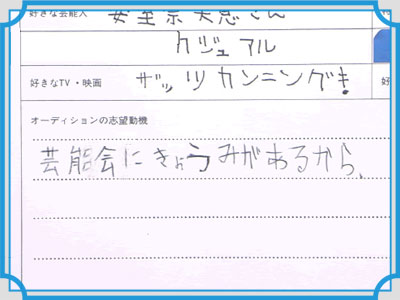 好きな芸能人 安室奈美恵さん
カジュアル
好きなTV・映画 ザッツカンニング! 好
オーディションの志望動機
芸能会にきょうみがあるから、